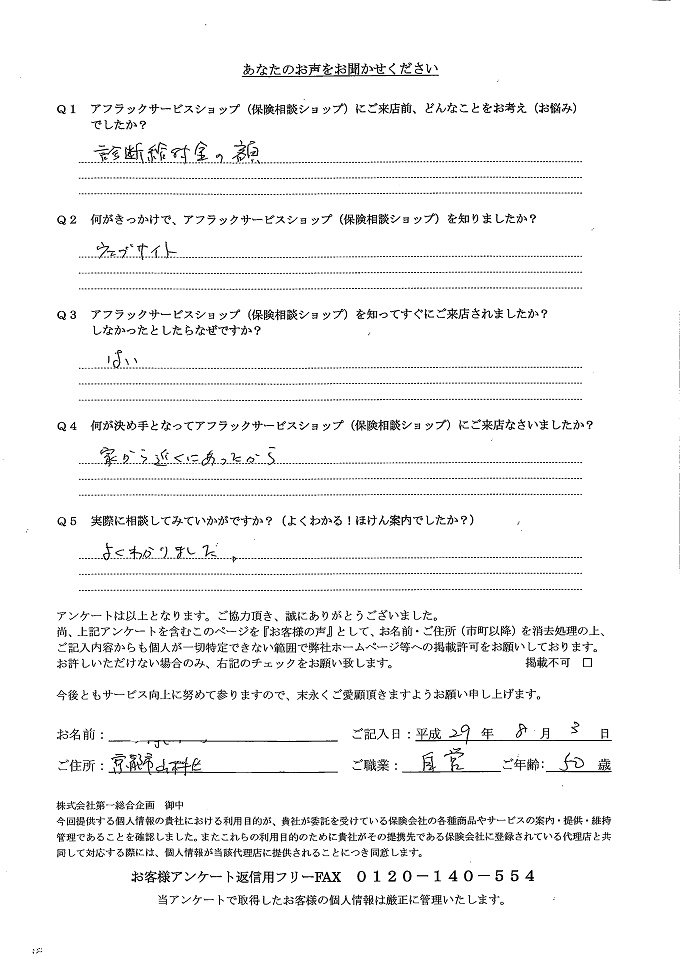 あなたのお声をお聞かせください
Q1 アフラックサービスショップ（保険相談ショップ）にご来店前、どんなことをお考え（お悩み）
でしたか？
診断給付金の額
Q2 何がきっかけで、アフラックサービスショップ（保険相談ショップ）を知りましたか？
ウェブサイト
Q3 アフラックサービスショップ（保険相談ショップ）を知ってすぐにご来店されましたか？
しなかったとしたらなぜですか？
はい
Q4 何が決め手となってアフラックサービスショップ（保険相談ショップ）にご来店なさいましたか？
家から近くにあったから
Q5 実際に相談してみていかがですか？（よくわかる！ほけん案内でしたか？）
よくわかりました。
アンケートは以上となります。ご協力頂き、誠にありがとうございました。
尚、上記アンケートを含むこのページを『お客様の声』として、お名前・ご住所（市町以降）を消去処理の上、
ご記入内容からも個人が一切特定できない範囲で弊社ホームページ等への掲載許可をお願いしております。
お許しいただけない場合のみ、右記のチェックをお願い致します。 掲載不可 □
今後ともサービス向上に努めて参りますので、末永くご愛顧頂きますようお願い申し上げます。
お名前： ご記入日：平成 29 年 8 月 3 日
ご住所：京都市山科区 ご職業： 自営 ご年齢： 50 歳
株式会社第一総合企画 御中
今回提供する個人情報の貴社における利用目的が、貴社が委託を受けている保険会社の各種商品やサービスの案内・提供・維持
管理であることを確認しました。またこれらの利用目的のために貴社がその提携先である保険会社に登録されている代理店と共
同して対応する際には、個人情報が当該代理店に提供されることにつき同意します。
お客様アンケート返信用フリーFAX 0120－140－554
当アンケートで取得したお客様の個人情報は厳正に管理いたします。